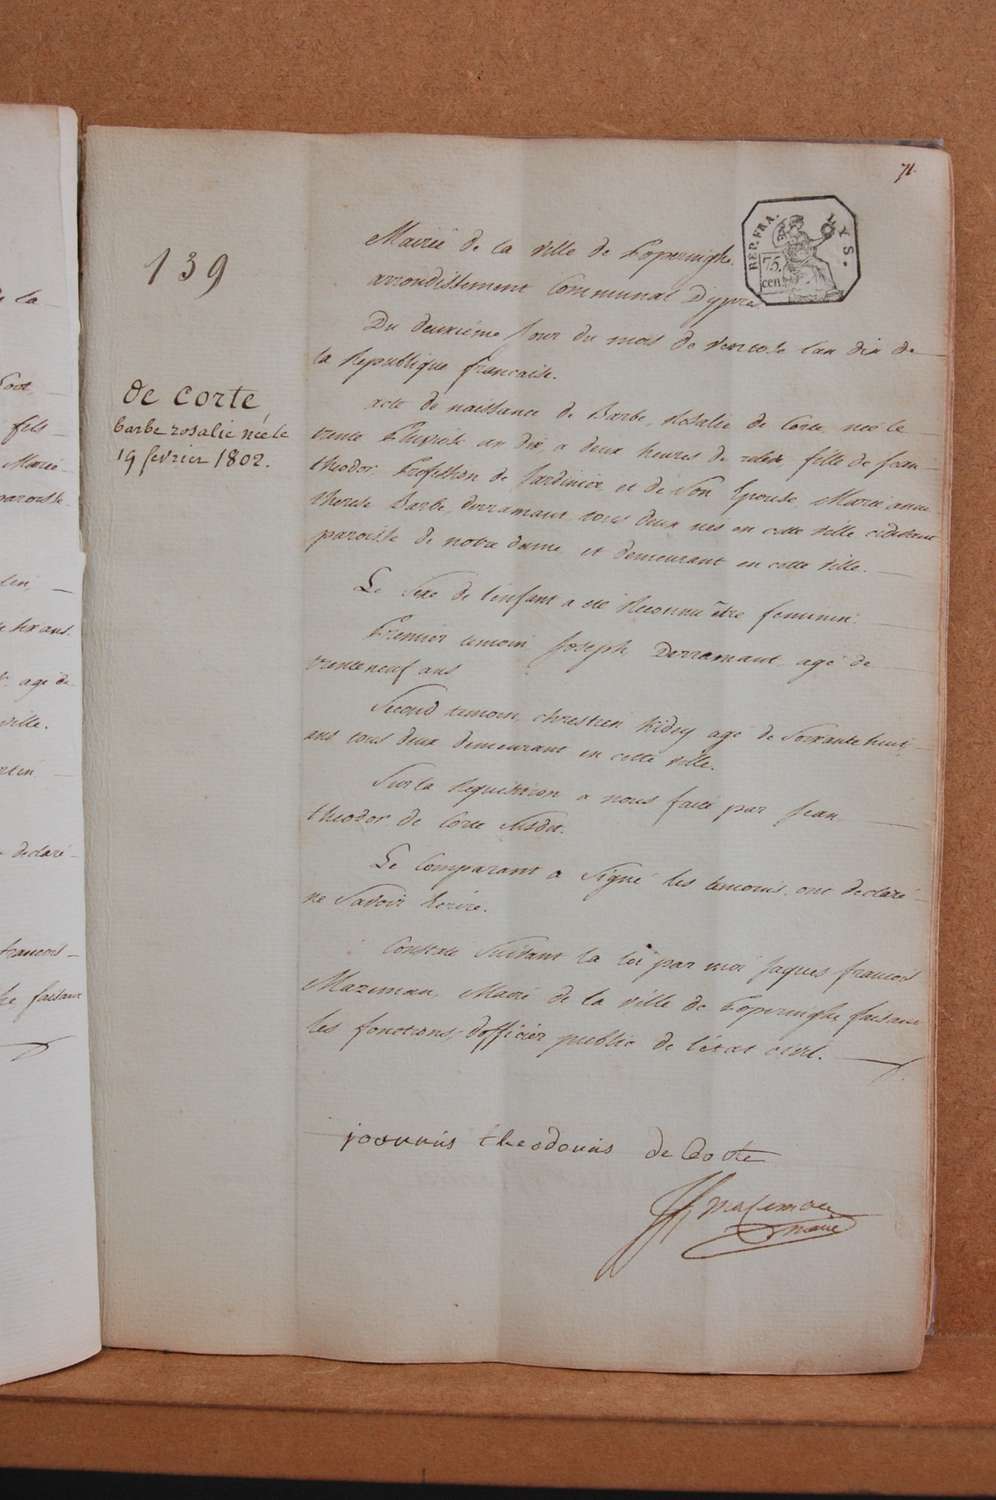 71.
REP. FRA. LYS.
75. cen
139
Mairie de la ville de Poperinghe
arrondissement Communal D'ypres
Du deuxième Jour du mois de ventose l'an dix de
la Republique francaise.
de corte
barbe rosalie née le
19 fevrier 1802.
acte de naissance de Barbe, Rosalie de Corte née le
trente Pluviose an dix, a deux heures de relevée, fille de jean
theodor, Profession de Jardinier et de Son Epouse, Marie anne
therese Barbe, derramaut, tous deux nés en cette ville cidevant
paroisse de notre dame, et demeurant en cette ville.
Le Sexe de l'enfant a été Reconnu être feminin.
Premier temoin, Joseph Derramaut agé de
trente neuf ans
Second temoin, chrestien agé de Soixante huit
ans tous deux demeurant en cette ville.
Sur la Requisition a nous faite par Jean
theodor de Corte Susdit.
Le Comparant a Signé les temoins, ont declaré
ne Savoir Ecrire.
Constaté Suivant la loi par moi Jaques francois
Mazeman, Maire de la ville de Poperinghe faisant
les fonctions, d'officier public de l'état civil.
joannis theodouis de Corte
Mazeman
maire
e la
fils
Marie
paroisse
ten,
six ans.
agé de
ville.
declaré
francois
faisant